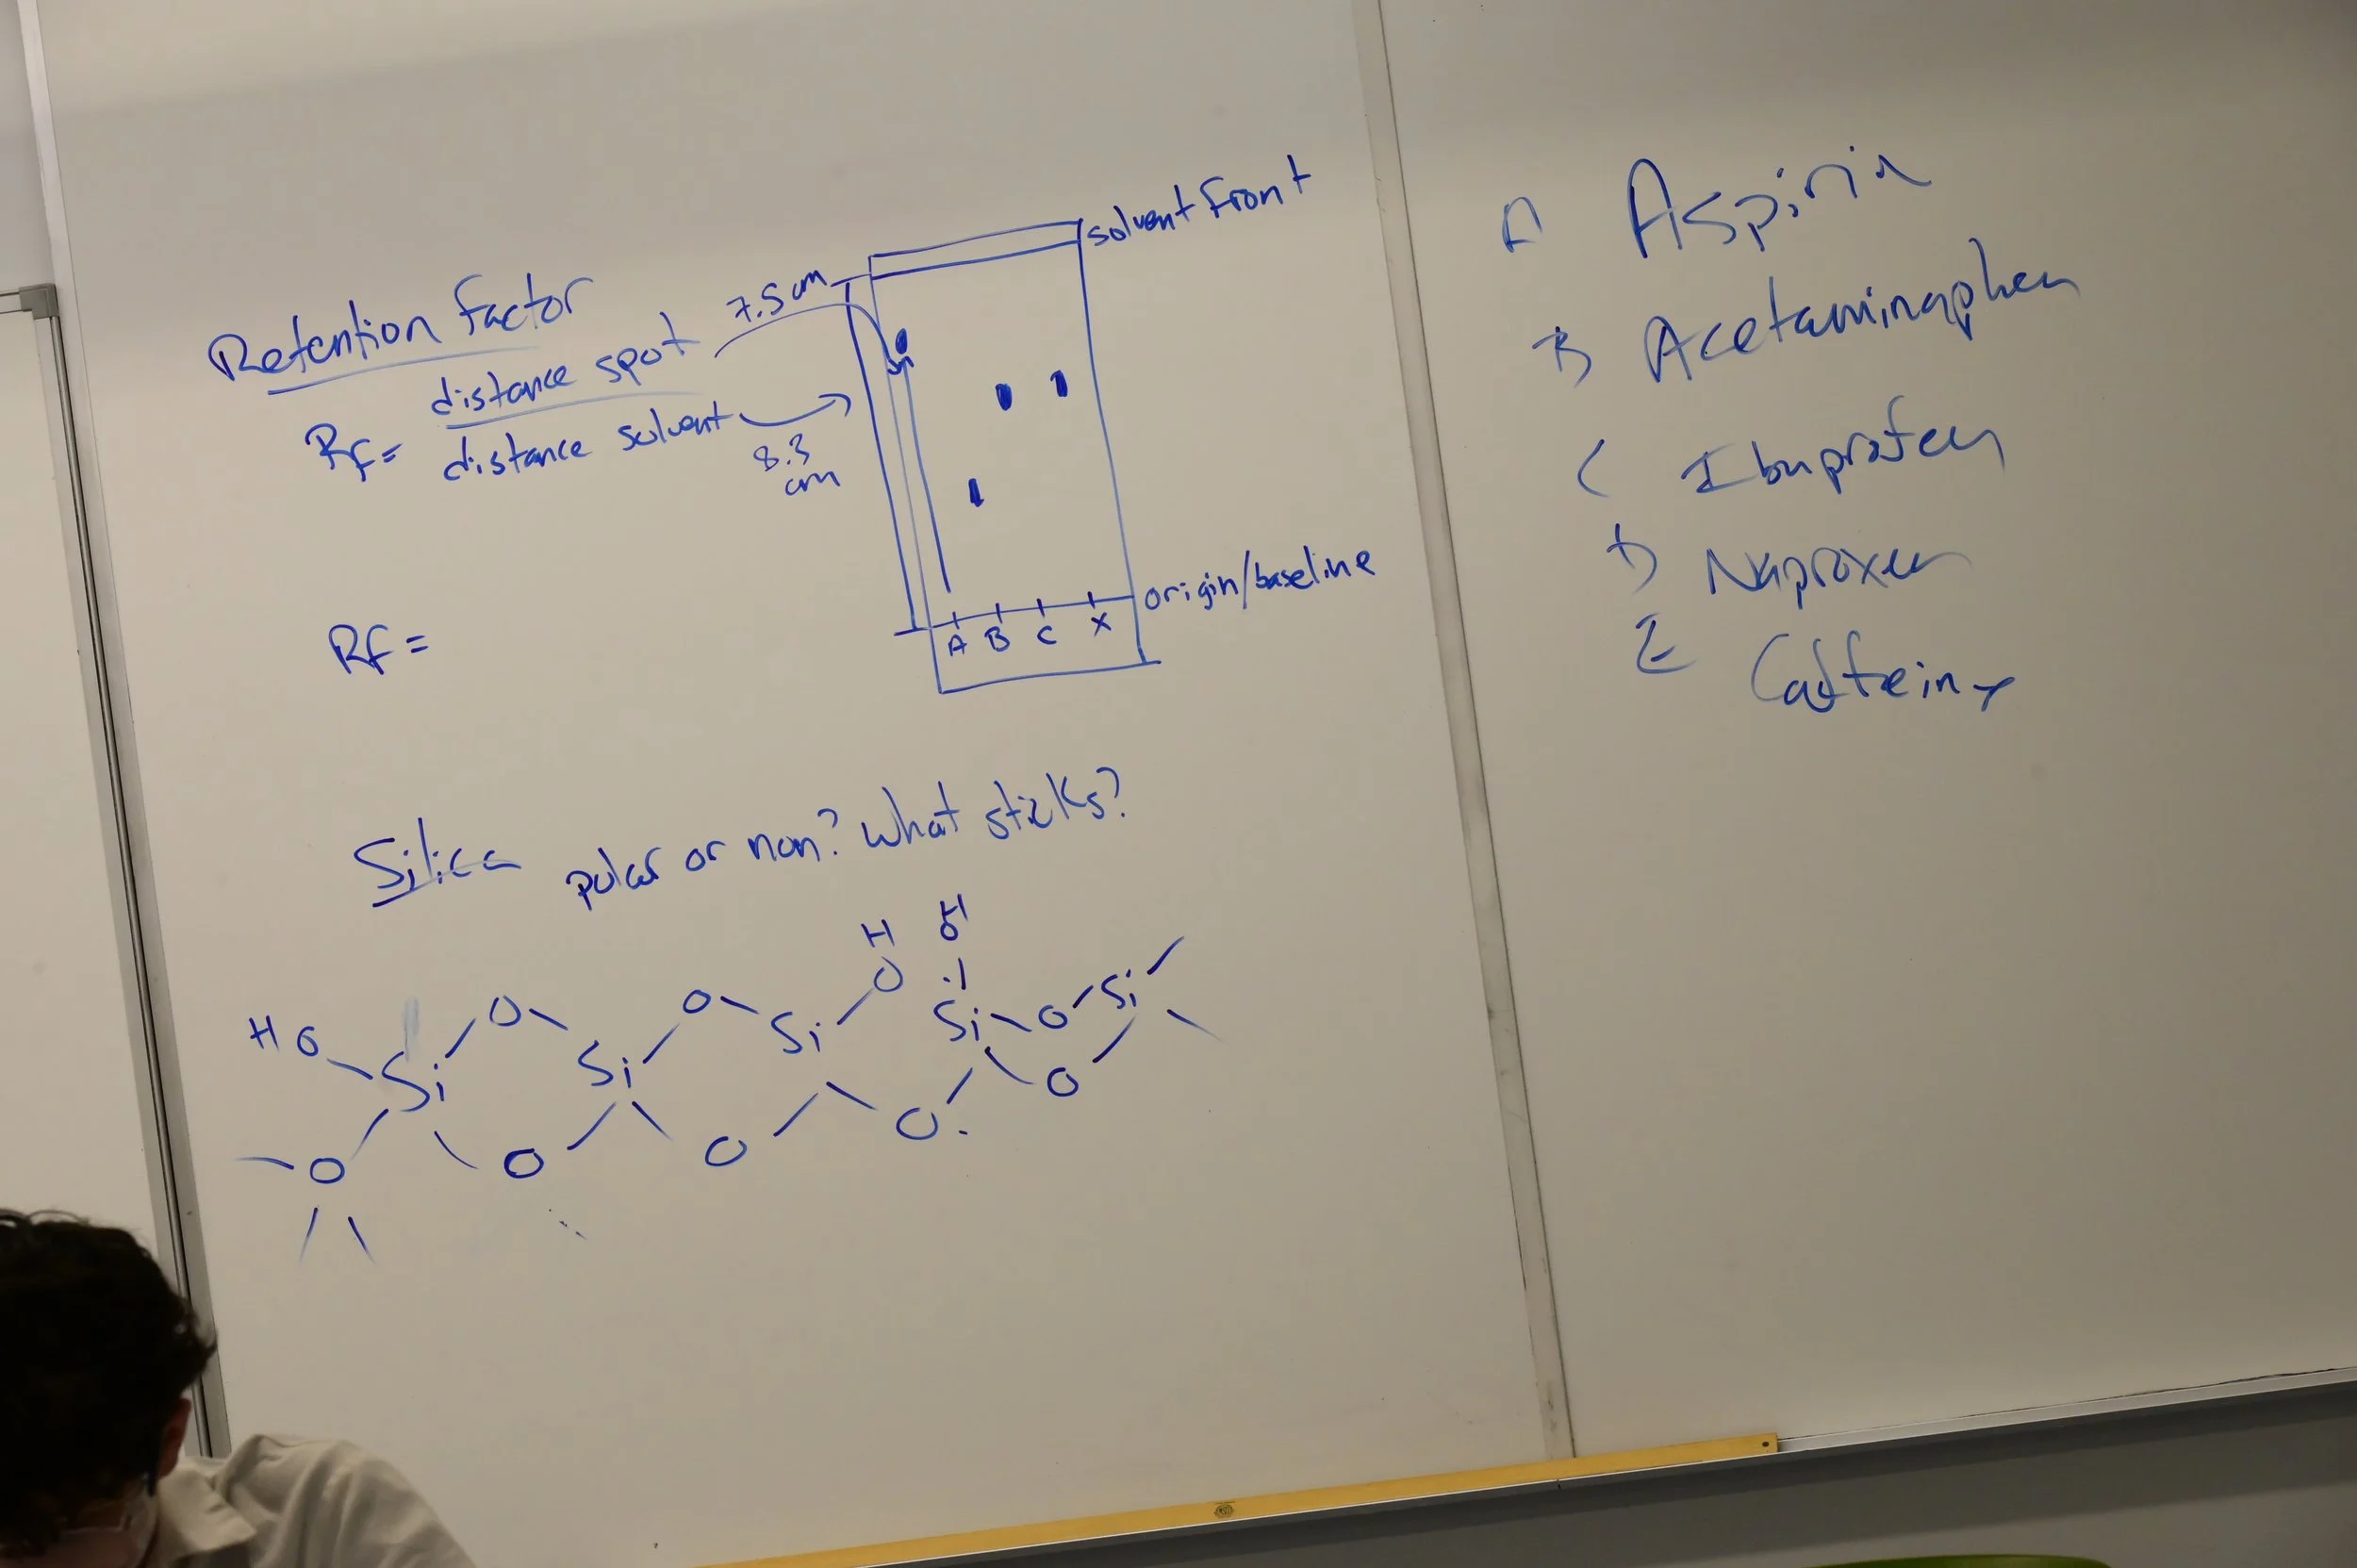 Retention factor
Rf = distance spot
distance solvent
7.5 cm
8.3
cm
solvent front
origin/baseline
A B C X
Rf =
Silica polar or non? What sticks?
H O
Si
O
Si
O
Si
O
H
Si
O
H
O
Si
O
O
O
O
O
A Aspirin
B Acetaminophen
C Ibuprofen
D Naproxen
E Caffeine